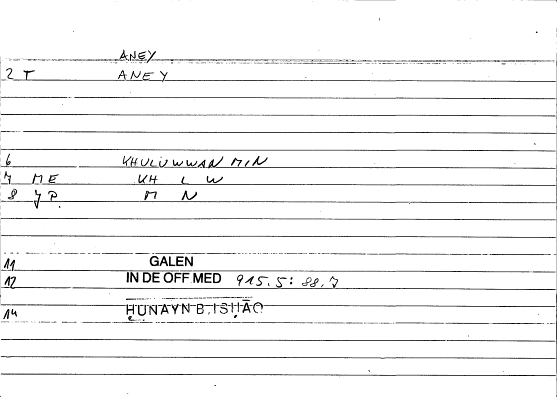 ANEY
2 T ANEY
6 KHULUWWAN MIN
7 ME KH L W
8 JP. M N
11 GALEN
12 IN DE OFF.MED 915.5: 88.7
14 ḤUNAYN B. ISḤĀQ